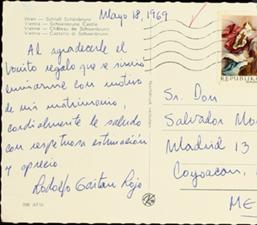 Mayo 18, 1969
Wien - Schloß Schönbrunn
Vienna - Schoenbrunn Castle
Vienne - Château de Schoenbrunn
Vienna - Castello di Schoenbrunn
Al agradecerle el
bonito regalo que se sirvió
enviarme con motivo
de mi matrimonio,
cordialmente le saludo
con respetuosa estimación
y aprecio
Rodolfo Gaitan Rojo
REPUBLIK
Sr. Don
Salvador Mo
Madrid 13
Coyoacan,
ME